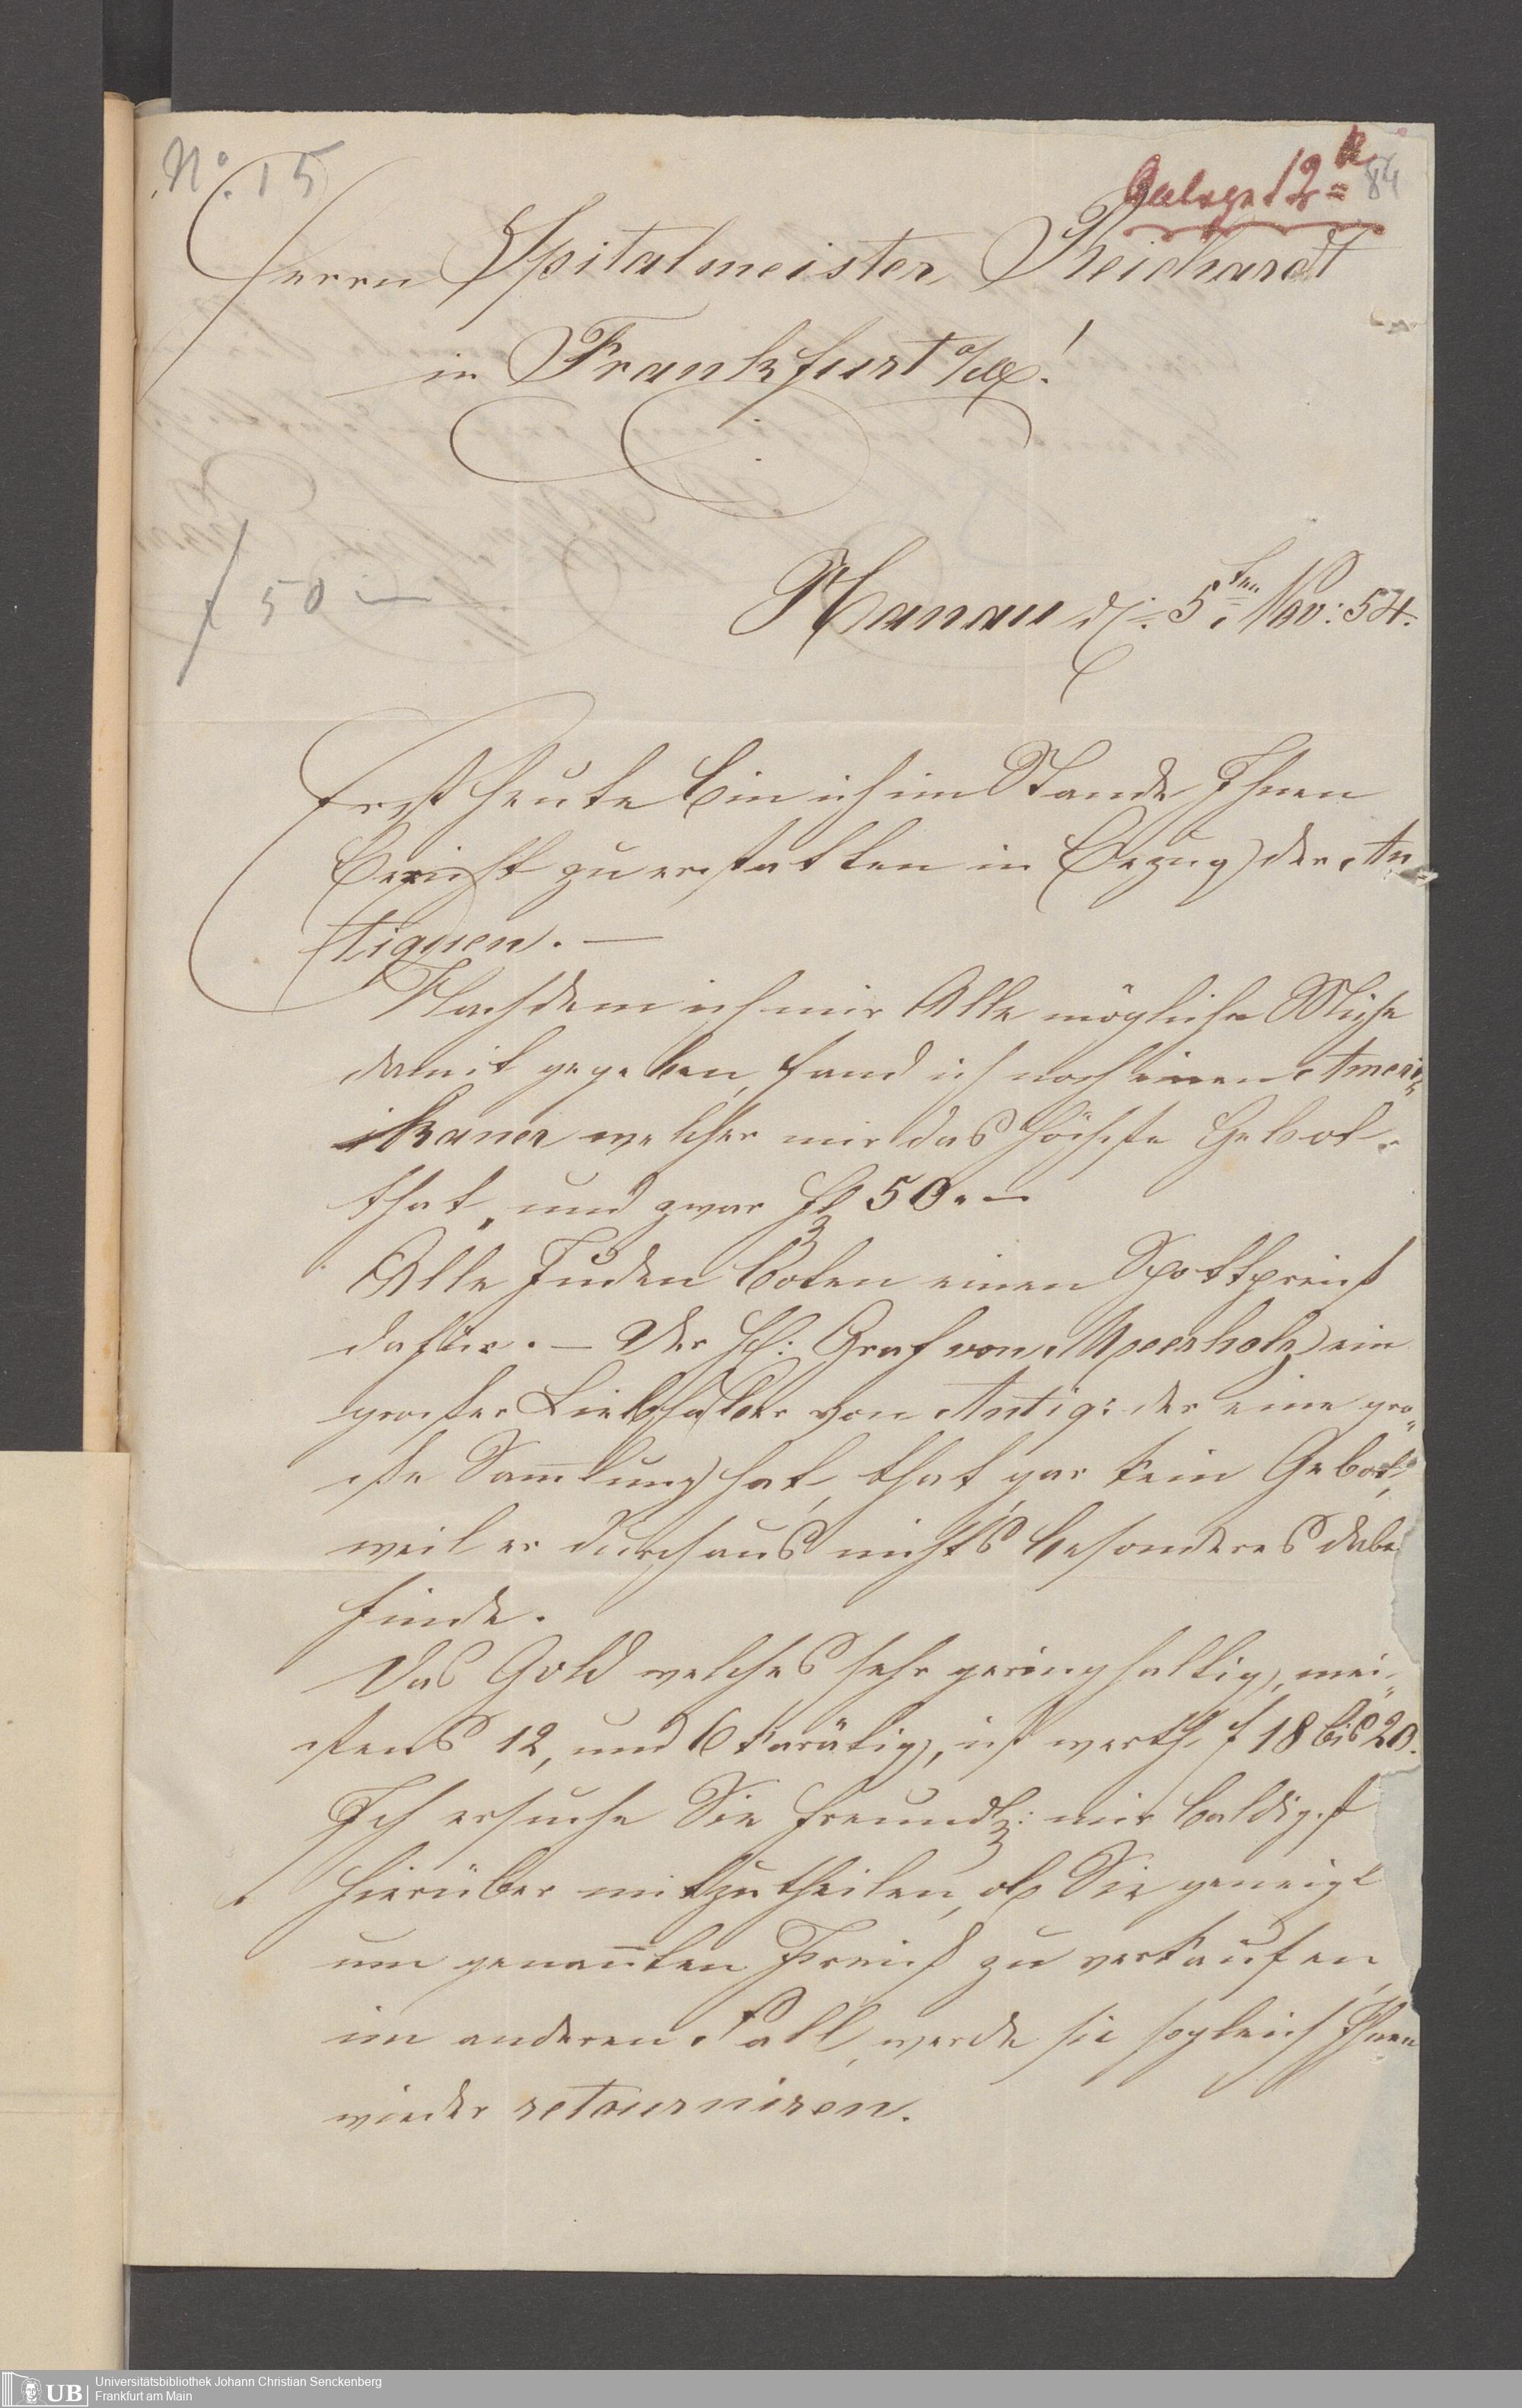 No. 15
Beilage 12
84
Herrn Spitalmeister Reichardt
in Frankfurt a/M!
f 50 —
Hanau d. 5ten Nov: 54.
Erst heute bin ich im Stande Ihnen
Bericht zu erstatten in Bezug der An
tiquen. —
Nachdem ich mir Alle mögliche Mühe
damit gegeben, fand ich noch einen Ameri„
ikaner welcher mir das höchste Gebot
that, und zwar fl 50.—
Alle Juden boten einen Spottpreiß
dafür. — Der H: Graf von Meerholz ein
großer Liebhaber von Antiq: der eine gro„
ße Sam̄lung hat, that gar kein Gebot,
weil er durchaus nichts besonderes dabe
finde.
Das Gold welches sehr geringhaltig, mei„
stens 12, und 6 karätig, ist werth f 18 bis 20.
Ich ersuche Sie freundl: mir baldigst
hierüber mitzutheilen, ob Sie geneigt
um genan̄ten Preiß zu verkaufen,
im anderen Fall, werde sie sogleich Ihnen
wieder retourniren.
UB
Universitätsbibliothek Johann Christian Senckenberg
Frankfurt am Main